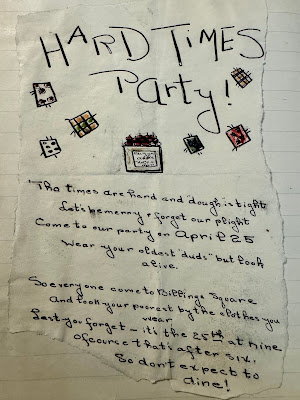 HARD TIMES
Party!
The times are hard and dough is tight
Let's be merry & forget our plight
Come to our party on April 25
Wear your oldest "duds" but look
alive.
So everyone come to Billings Square
And look your poorest by the clothes you
wear
Lest you forget - it's the 25th at nine
ofcourse that's after six.
So don't expect to
dine!